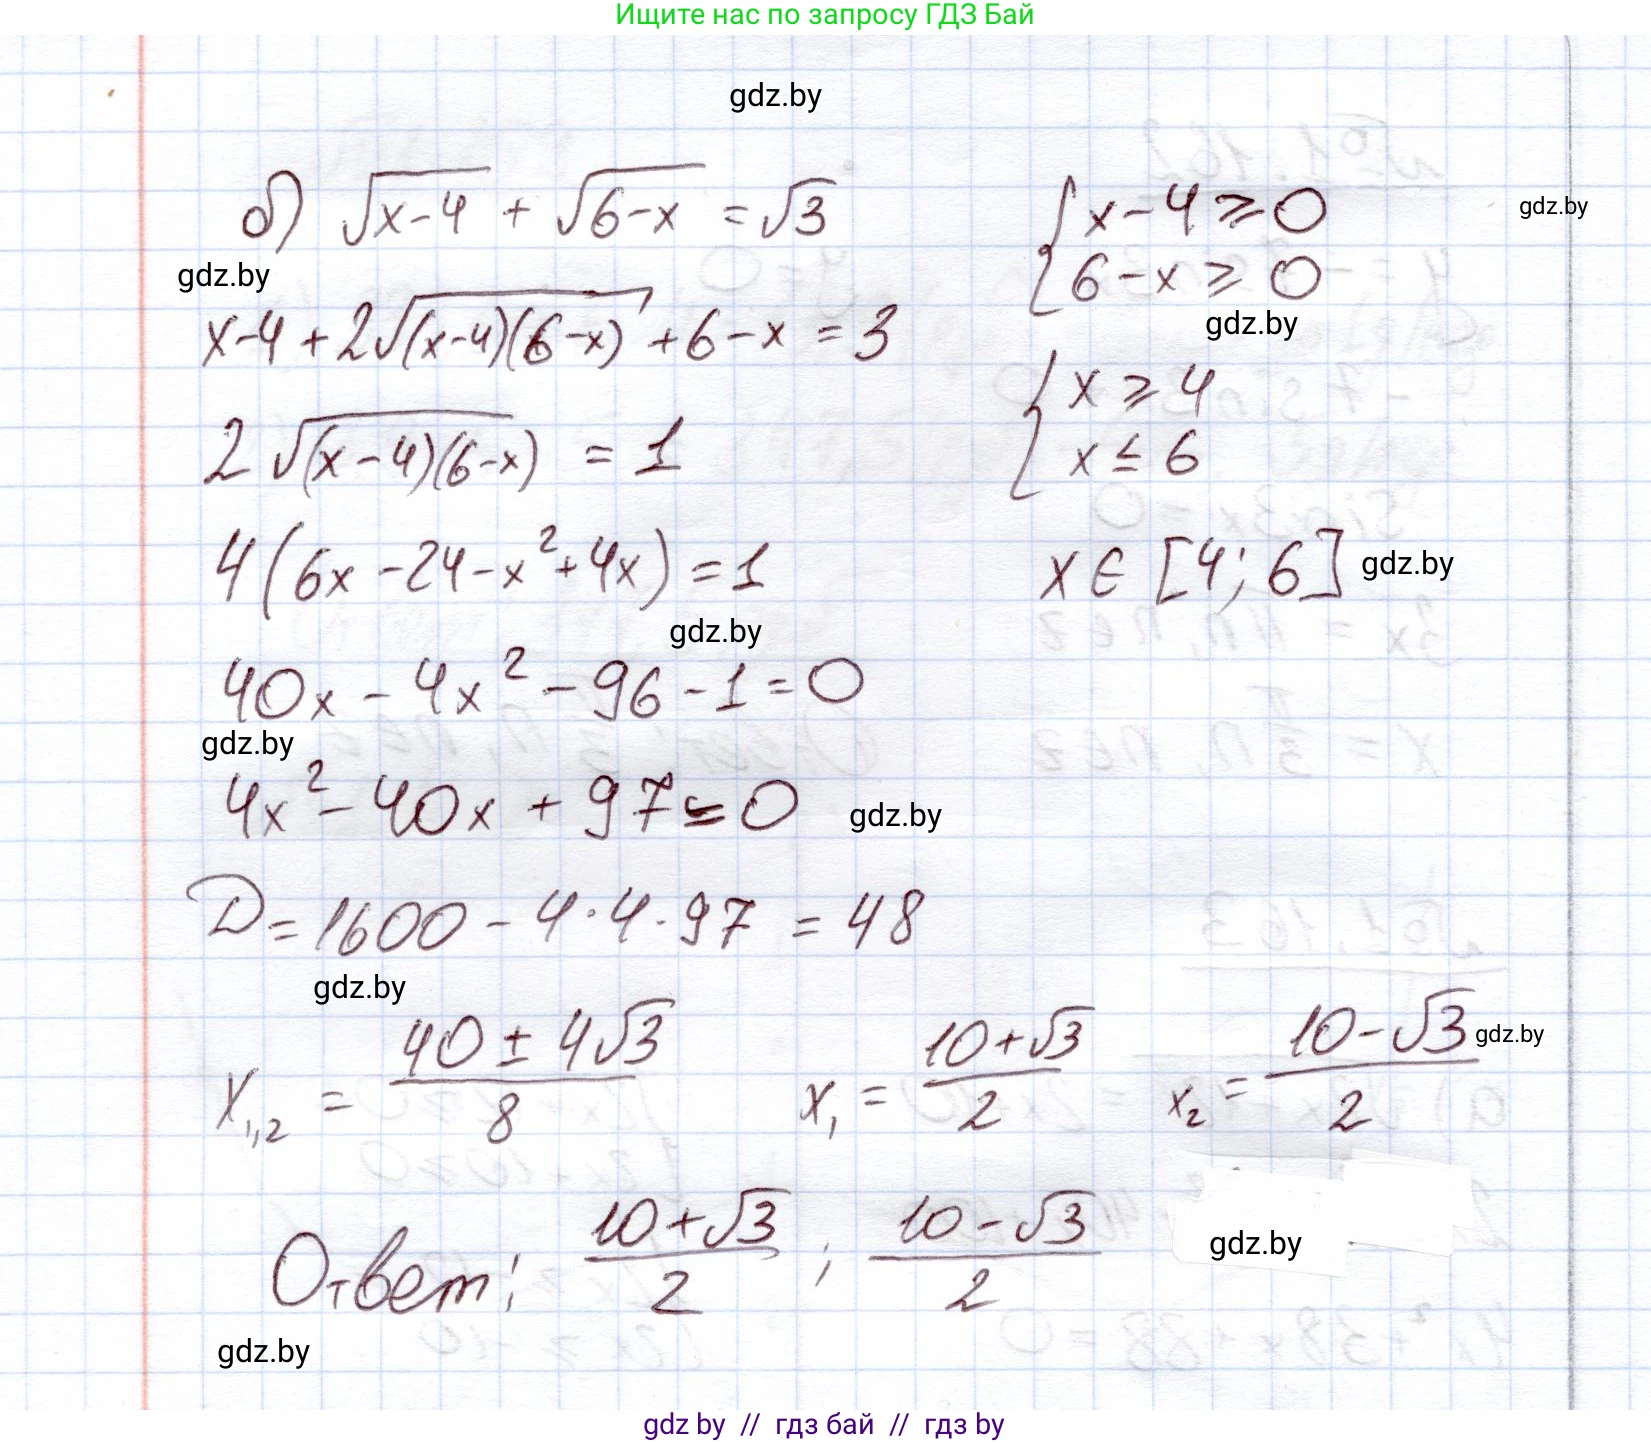 Ищите нас по запросу ГДЗ Бай
gdz.by
б) √(x-4) + √(6-x) = √3
{ x-4 ≥ 0
gdz.by
{ 6-x ≥ 0
gdz.by
gdz.by
x-4 + 2√((x-4)(6-x)) + 6-x = 3
{ x ≥ 4
2√((x-4)(6-x)) = 1
{ x ≤ 6
4(6x-24-x²+4x) = 1
x ∈ [4; 6]
gdz.by
gdz.by
40x - 4x² - 96 - 1 = 0
gdz.by
4x² - 40x + 97 = 0
gdz.by
D = 1600 - 4·4·97 = 48
gdz.by
x₁,₂ = (40 ± 4√3)/8
x₁ = (10+√3)/2
x₂ = (10-√3)/2
gdz.by
Ответ: (10+√3)/2 ; (10-√3)/2
gdz.by
gdz.by
gdz by // гдз бай // гдз by